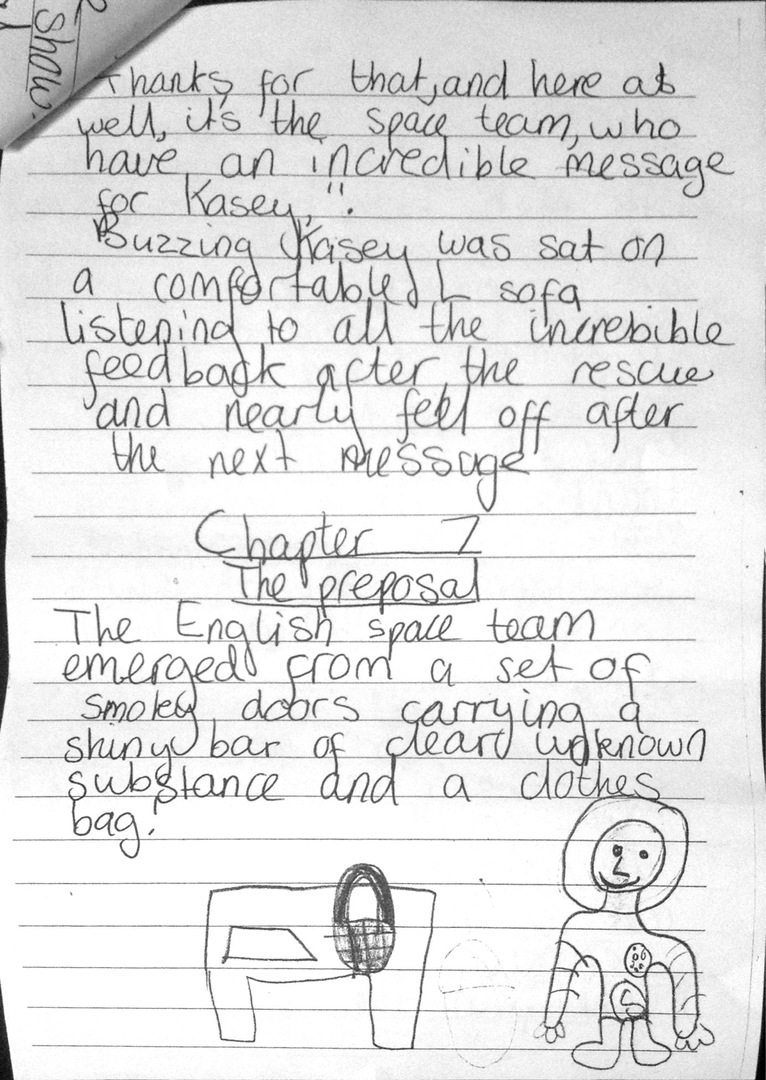 Show.
Thanks for that, and here as
well, it's the space team, who
have an incredible message
for Kasey,".
Buzzing Kasey was sat on
a comfortable L sofa
listening to all the increbible
feedback after the rescue
and nearly fell off after
the next message
Chapter 7
The preposal
The English space team
emerged from a set of
smokey doors carrying a
shiny bar of clear unknown
substance and a clothes
bag.